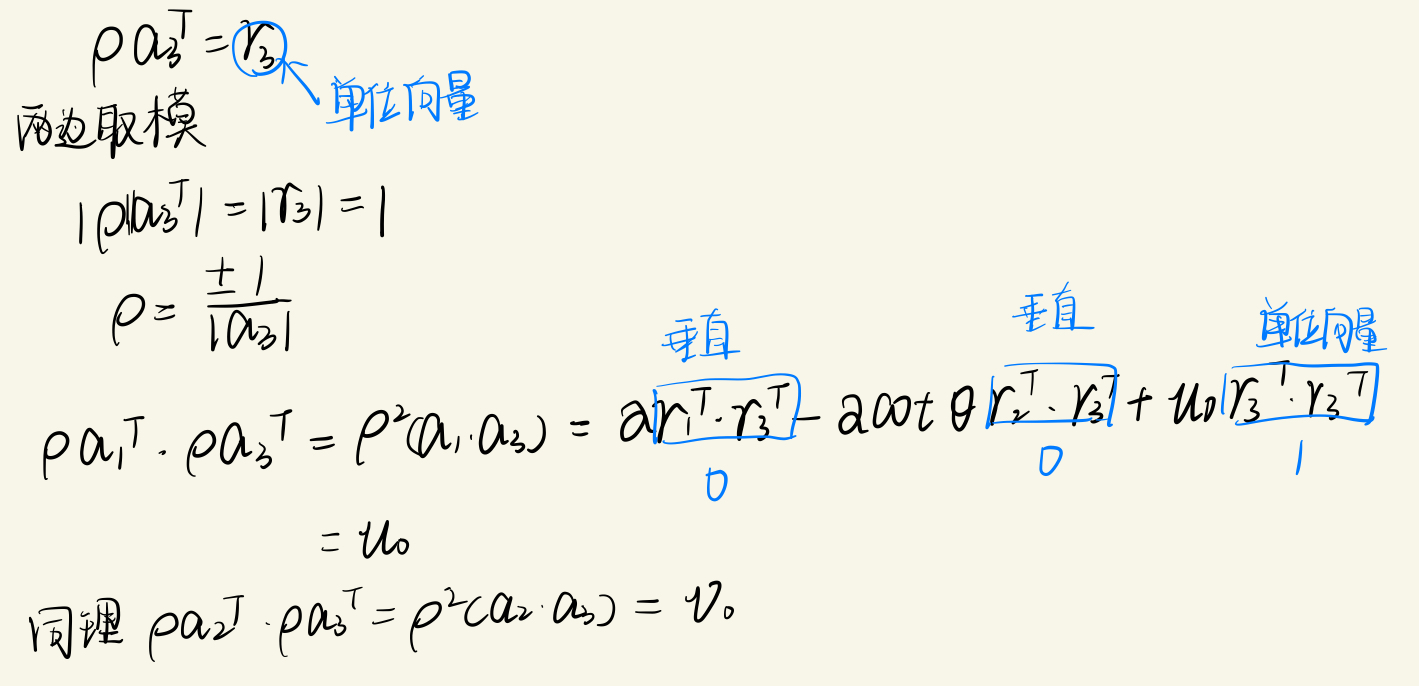 ρa₃ᵀ = r₃
单位向量
两边取模
|ρ||a₃ᵀ| = |r₃| = 1
ρ = ±1/|a₃|
垂直 垂直 单位向量
ρa₁ᵀ · ρa₃ᵀ = ρ²(a₁·a₃) = αr₁ᵀ·r₃ᵀ - αcotθ r₂ᵀ·r₃ᵀ + u₀ r₃ᵀ·r₃ᵀ
0 0 1
= u₀
同理 ρa₂ᵀ · ρa₃ᵀ = ρ²(a₂·a₃) = v₀